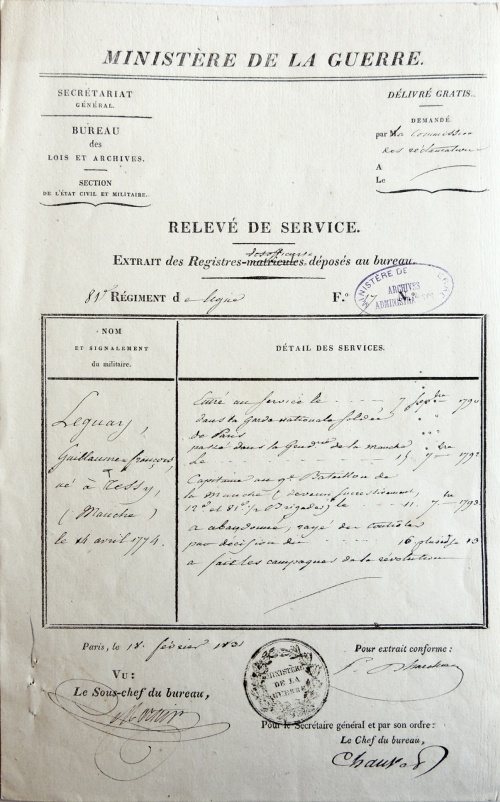 MINISTÈRE DE LA GUERRE.
SECRÉTARIAT
GÉNÉRAL.
BUREAU
des
LOIS ET ARCHIVES.
SECTION
DE L'ÉTAT CIVIL ET MILITAIRE.
DÉLIVRÉ GRATIS.
DEMANDÉ
par la Commission
des réclamations
A
Le
RELEVÉ DE SERVICE.
EXTRAIT des Registres matricules des officiers déposés au bureau.
81e RÉGIMENT de ligne
F.o 17 N.o
MINISTÈRE DE LA GUERRE
ARCHIVES
NOM
ET SIGNALEMENT
du militaire.
DÉTAIL DES SERVICES.
Lequay,
Guillaume françois,
né à Tessy,
(Manche)
le 14 avril 1774.
Entré au service le 7bre
dans la Garde nationale soldée
de Paris
passé dans la Gendrie de la manche
le 15 7bre 1792
Capitaine au 9e Bataillon de
la Manche (devenu successivement,
12e et 81e 1/2 Brigades) le 11 7bre 1793
a abandonné, rayé des contrôles
par décision du 16 pluviôse 13
a fait les campagnes de la révolution
Paris, le 18 février 1831
VU:
Le Sous-chef du bureau,
MINISTÈRE
DE LA
GUERRE
Pour extrait conforme:
Pour le Secrétaire général et par son ordre:
Le Chef du bureau,